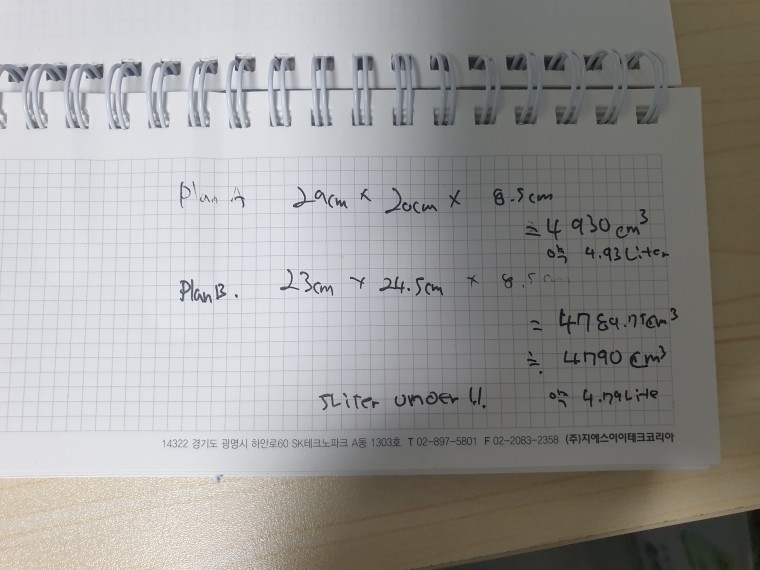 Plan A 29cm × 20cm × 8.5cm
= 4930cm³
약 4.93Liter
Plan B. 23cm × 24.5cm × 8.5cm
= 4789.75cm³
≒ 4790cm³
5Liter under 나. 약 4.79Lite
14322 경기도 광명시 하안로60 SK테크노파크 A동 1303호 T 02-897-5801 F 02-2083-2358 (주)지에스이이테크코리아